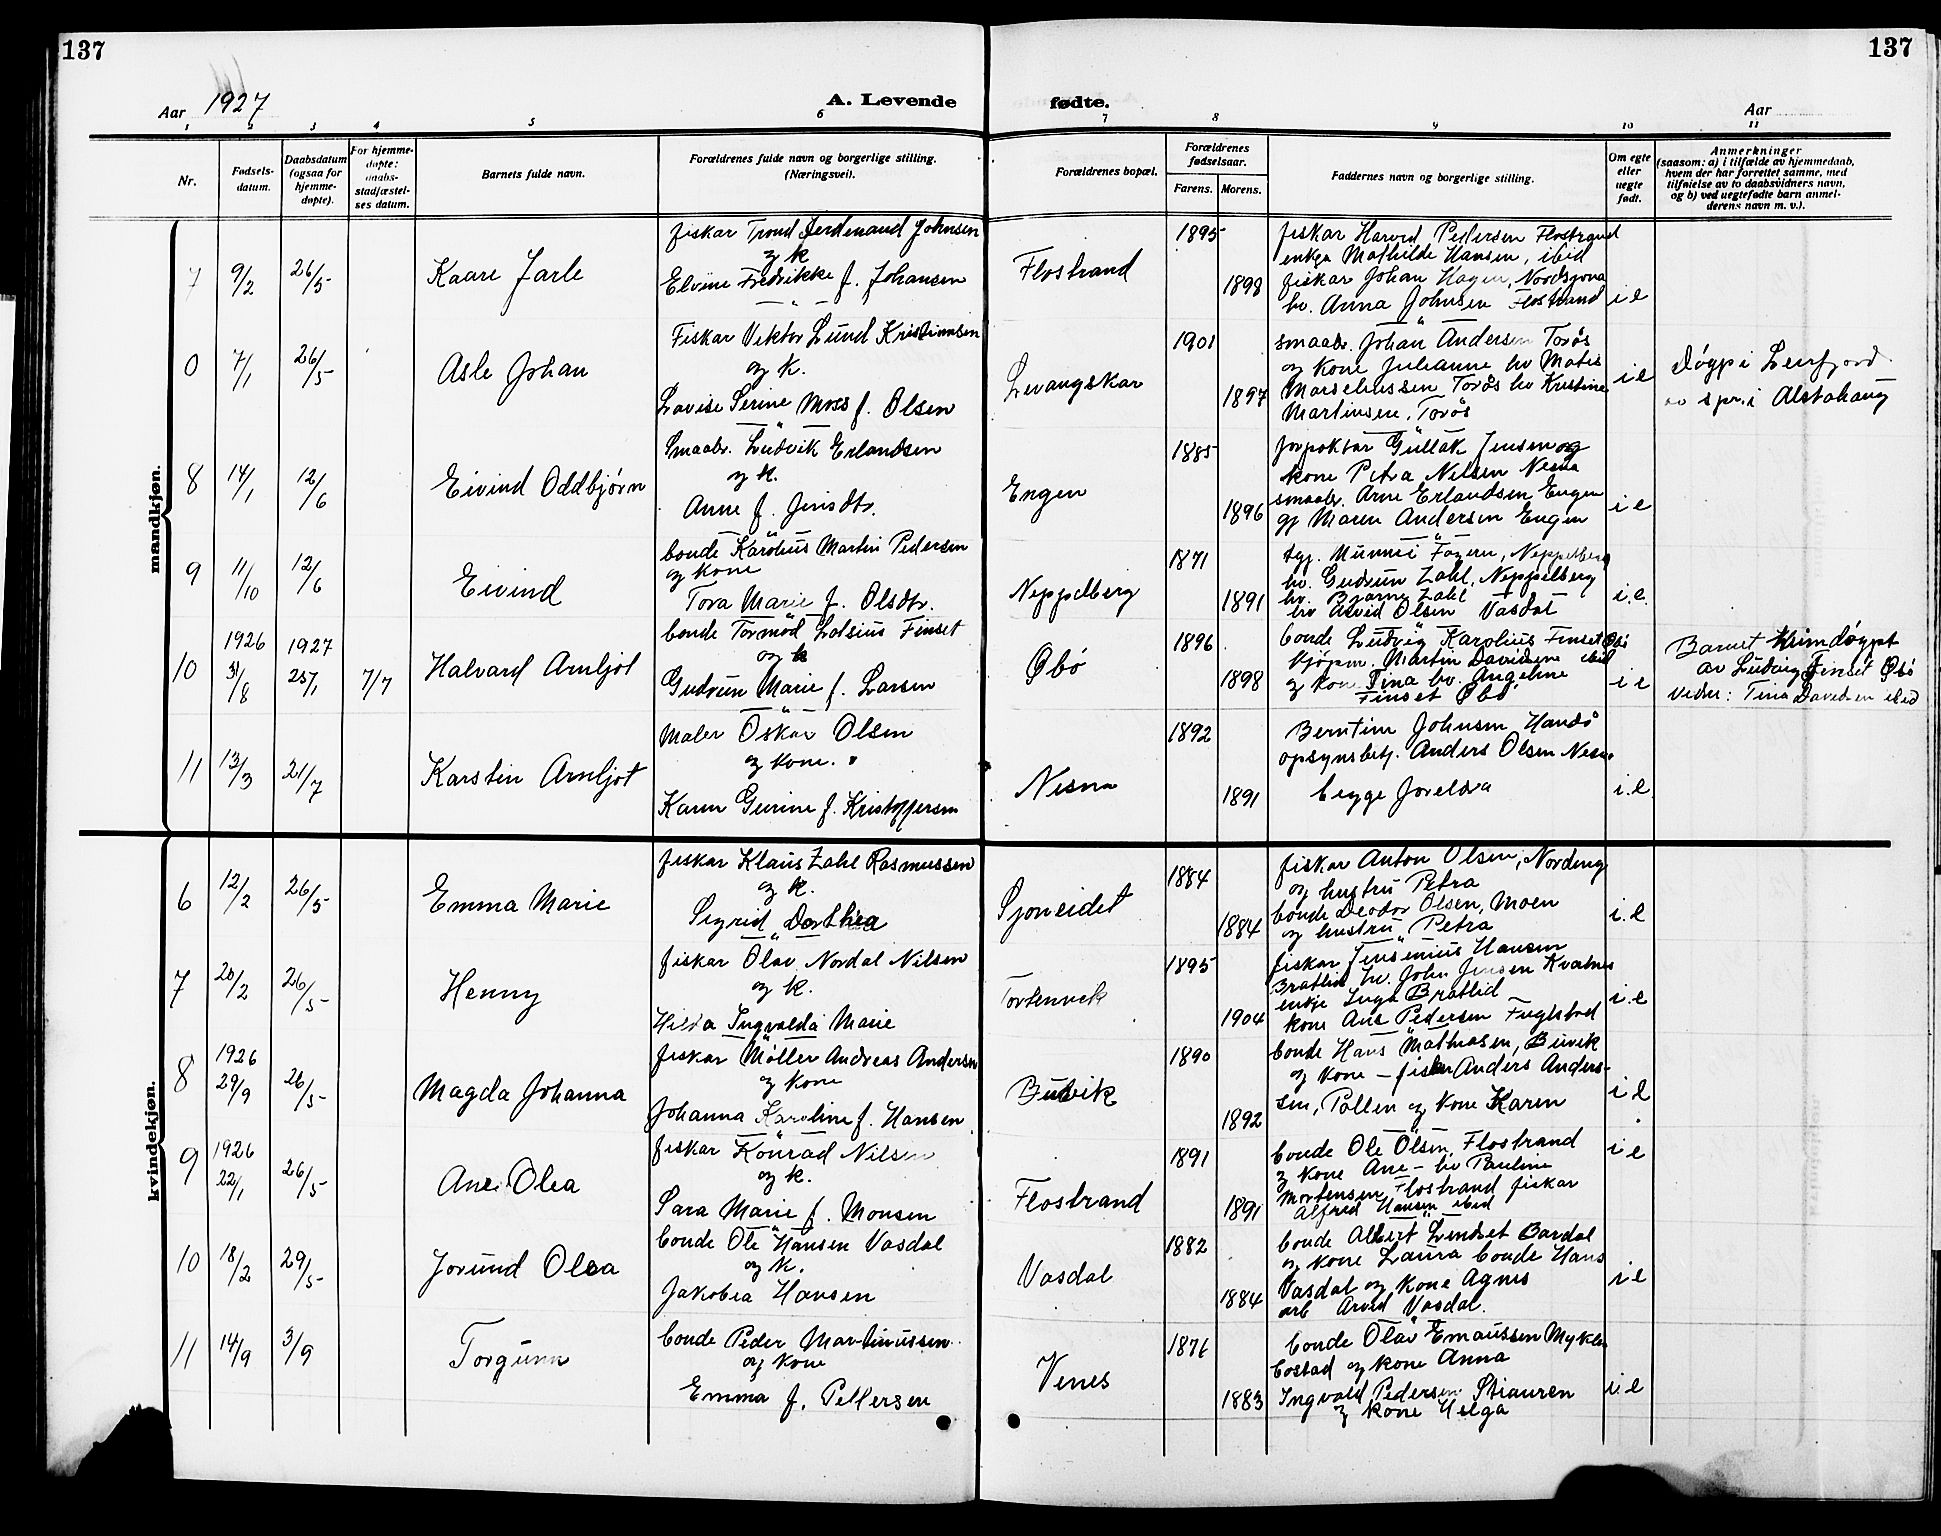 137
137
Aar 1927
A. Levende
fødte.
Aar
1 2 3 4 5 6 7 8 9 10 11
Nr.
Fødsels-
datum.
Daabsdatum
(ogsaa for
hjemme-
døpte).
For hjemme-
døpte:
daabs-
stadfæstel-
ses datum.
Barnets fulde navn.
Forældrenes fulde navn og borgerlige stilling.
(Næringsvei).
Forældrenes bopæl.
Forældrenes
fødselsaar.
Farens. Morens.
Faddernes navn og borgerlige stilling.
Om egte
eller
uegte
født.
Anmerkninger
(saasom: a) i tilfælde av hjemmedaab,
hvem der har forrettet samme, med
tilføielse av to daabsvidners navn,
og b) ved uegtefødte barn anmel-
derens navn m. v.).
mandkjøn.
7 9/2 26/5 Kaare Jarle
fiskar Trond Ferdinand Johnsen
og k
Elvine Fredrikke f. Johansen
Flostrand
1895
1898
fiskar Harvid Pedersen Flostrand
enkja Mathilde Hansen, ibid
fiskar Johan Hagen, Nordsjona
hv. Anna Johnsen Flostrand
i e
0 7/1 26/5 Asle Johan
Fiskar Viktor Lund Kristiansen
og k.
Lovise Serine Moss f. Olsen
Levangskar
1901
1897
smaabr. Johan Andersen Torøs
og kone Julianne hv Matis
Marseliussen Torøs hv Kristine
Martinsen, Torøs
i e
Døypt i Leirfjord
spr. i Alstahaug
8 14/1 12/6 Eivind Oddbjørn
Smaabr. Ludvik Erlandsen
og k.
Anne f. Jensdtr.
Engen
1885
1896
forpaktar Gullak Jensen og
kone Petra Nilsen Nesna
smaabr. Arne Erlandsen Engen
gj Maren Andersen Engen
i e
9 11/10 12/6 Eivind
bonde Karolius Martin Pedersen
og kone
Tora Marie f. Olsdtr.
Neppelberg
1871
1891
tgj. Mummi Fagern, Neppelberg
hv. Gudrun Zahl, Neppelberg
hv. Bjarne Zahl
hv Arvid Olsen Vasdal
i.e.
10 1926 31/8 1927 25/1 7/7 Halvard Arnljot
bonde Tormod Lotsius Finset
og k
Gudrun Marie f. Larsen
Øbø
1896
1898
bonde Ludvig Karolius Finset Øbø
kjøpm. Martin Davidsen ibid
og kone Tina hv. Angeline
Finset Øbø
i e
Barnet heimdøypt
av Ludvig Finset Øbø
vidner: Tina Davidsen ibid
11 13/3 21/7 Karstein Arnljot
Maler Oskar Olsen
og kone.
Karen Gurine f. Kristoffersen
Nesna
1892
1891
Berntine Johnsen Handø
opsynsbetj. Anders Olsen Nesna
begge foreldra
i.e.
kvindekjøn.
6 12/2 26/5 Emma Marie
fiskar Klaus Zahl Rasmussen
og k.
Sigrid Dorthea
Sjoneidet
1884
1884
fiskar Anton Olsen, Nordeng
og hustru Petra
bonde Deodor Olsen, Moen
og hustru Petra
i.e
7 20/2 26/5 Henny
fiskar Olav Nordal Nilsen
og k.
Hilda Ingvalda Marie
Tortenvik
1895
1904
fiskar Jensenius Hansen
Bratlid hv. John Jensen Kvalnes
enkje Inga Bratlid
kone Ane Pedersen Fuglstad
i.e
8 1926 29/9 26/5 Magda Johanna
fiskar Møller Andreas Andersen
og kone
Johanna Karoline f. Hansen
Buvik
1890
1892
bonde Hans Mathiasen, Buvik
og kone – fiskar Anders Anders-
sen, Pollen og kone Karen
i e
9 1926 22/1 26/5 Ane Olea
fiskar Konrad Nilsen
og k.
Sara Marie f. Monsen
Flostrand
1891
1891
bonde Ole Olsen, Flostrand
og kone Ane – hv Pauline
Mortensen Flostrand fiskar
Alfred Hansen ibid
i e
10 18/2 29/5 Jorund Olea
bonde Ole Hansen Vasdal
og k.
Jakobea Hansen
Vasdal
1882
1884
bonde Albert Lindset Bardal
og kone Laura bonde Hans
Vasdal og kone Agnes
arb Arvid Vasdal.
i e
11 14/9 3/9 Torgunn
bonde Peder Martinussen
og kone
Emma f. Pettersen
Venes
1876
1883
bonde Olav Emaussen Mykle-
bostad og kone Anna
Ingvald Pedersen Stiauren
og kone Helga
i.e